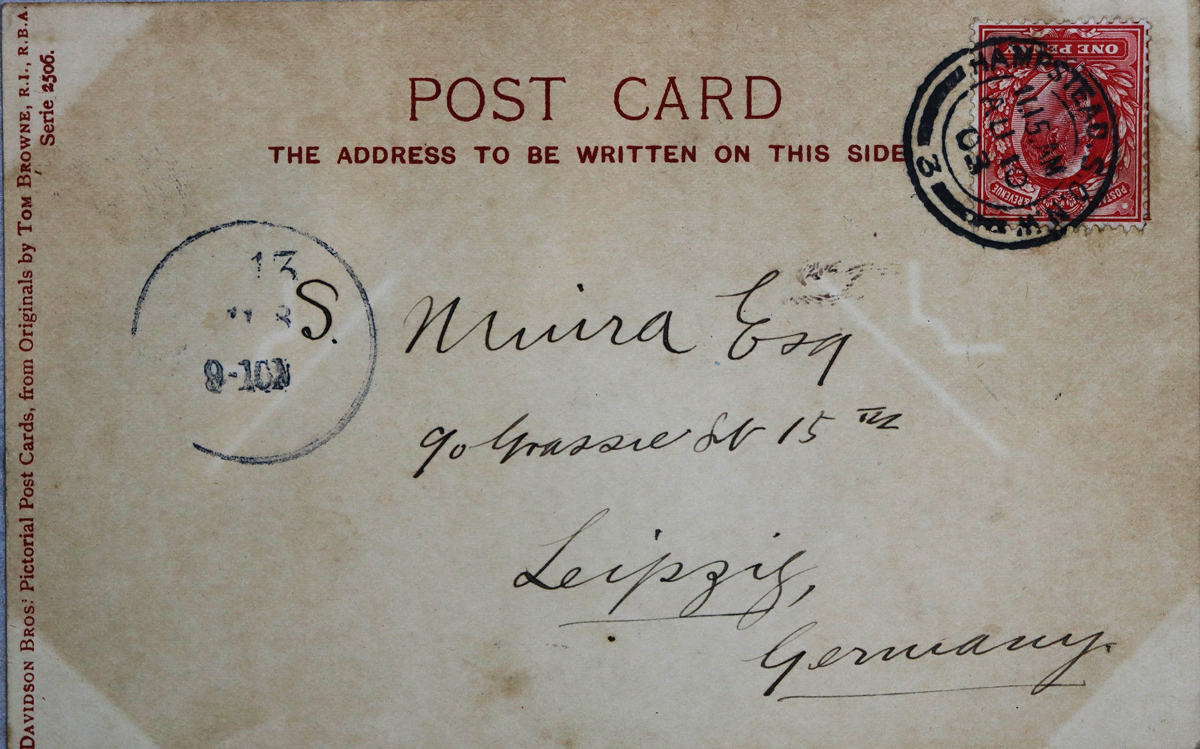 DAVIDSON BROS.' Pictorial Post Cards, from Originals by TOM BROWNE, R.I., R.B.A.
Serie 2506.
POST CARD
THE ADDRESS TO BE WRITTEN ON THIS SIDE
ONE PENNY
POSTAGE & REVENUE
HAMPSTEAD S.O. N.W.
11.15 AM
AU 10
03
3
13
8
9-10N
S. Miura Esq
Grassie St 15
Leipzig,
Germany.